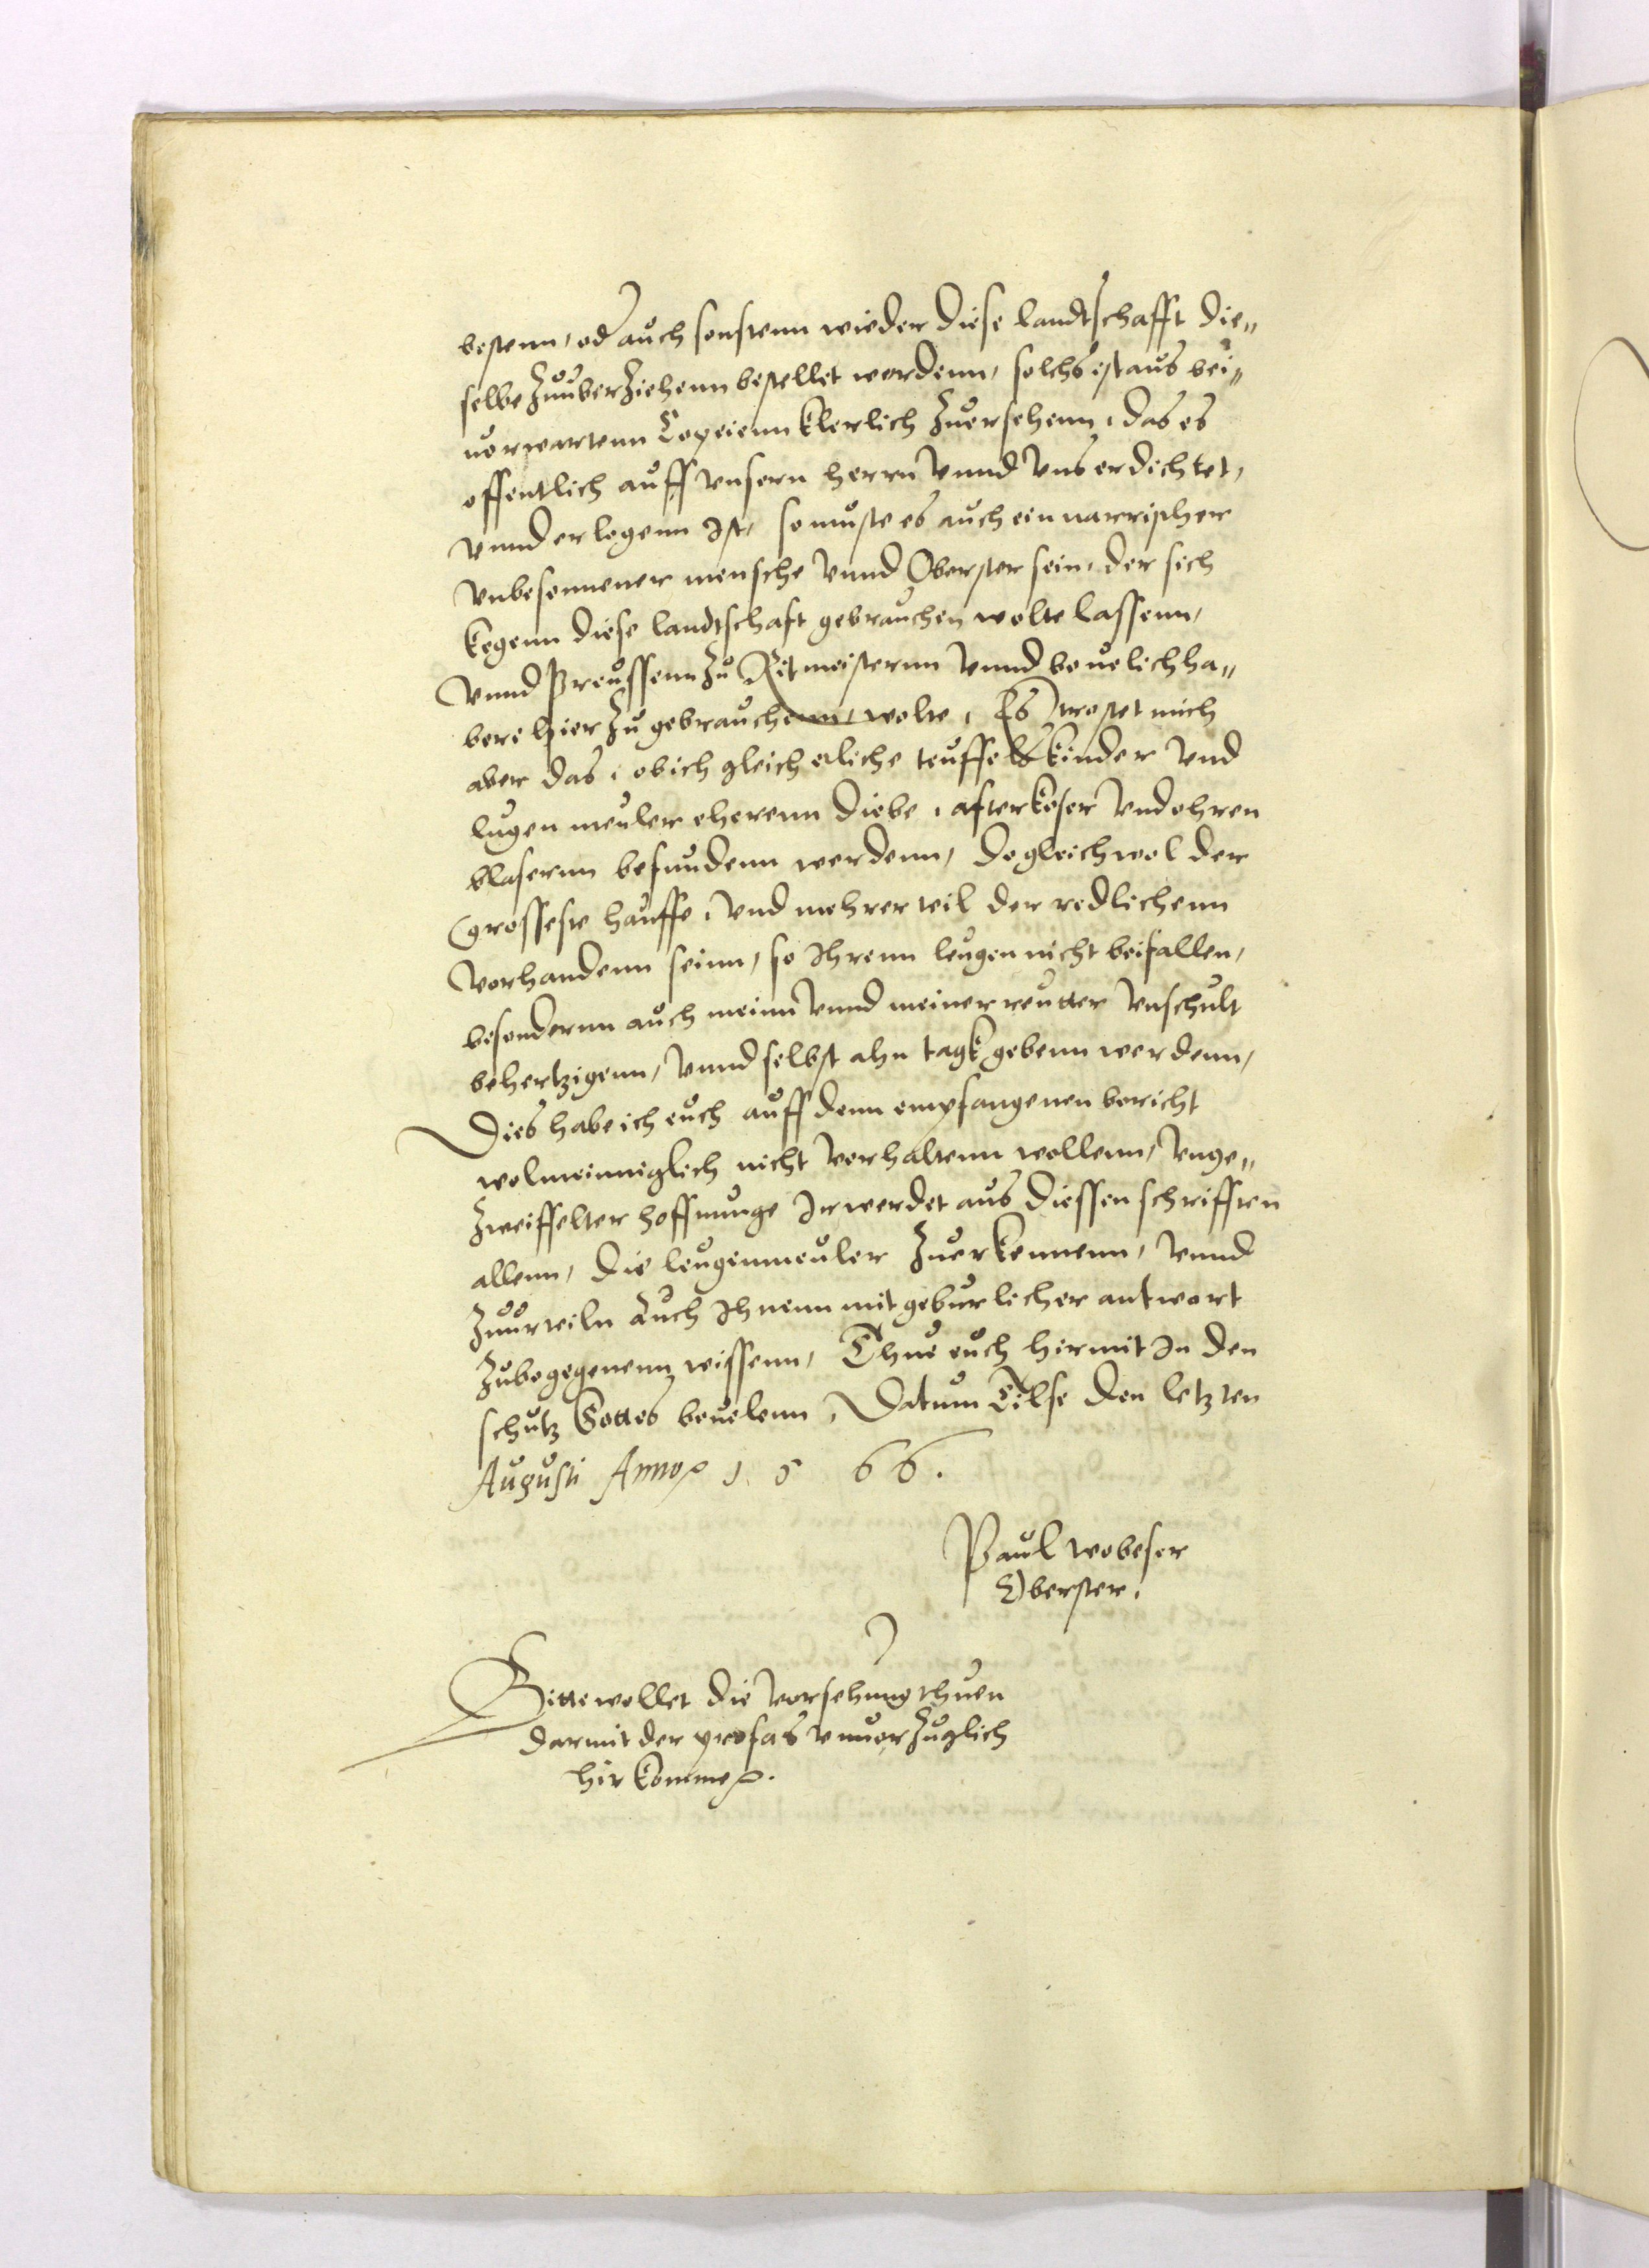 bestenn, od auch sonstenn wieder diese landtschafft die„
selbe zuuberziehenn bestellet werdenn, solchs ist aus bei„
uorwartenn Copeienn klerlich zuersehenn, das es
offentlich auff vnsern herrn vnnd vns erdichtet,
vnnd erlogenn Ist, so muste es auch ein narrischer
vnbesonnener mensche vnnd Oberster sein, der sich
kegenn diese landtschaft gebrauchen wolte lassenn,
vnnd Preussenn zu Ritmeisternn vnnd beuelichha„
bere hier zu gebrauchenn, wolte, Es trostet mich
aber das, ob ich gleich etliche teuffelskinder vnd
lugen meuler eherenn diebe, afterkoser vnd ohren
blasernn befundenn werdenn, do gleichwol der
grosseste hauffe, vnd mehrer teil der redlichenn
vorhandenn seinn, so Ihrenn leugen nicht beifallen,
besondernn auch meinn vnnd meiner reutter vnschult
behertzigenn, vnnd selbst ahn tagk gebenn werdenn,
Dies habe ich euch auff denn empfangenen bericht
wolmeinniglich nicht vorhaltenn wollenn, vnge„
zweiffelter hoffnunge Ir werdet aus diessen schrifften
allenn, die leugenmeuler zuerkennenn, vnnd
zuurteiln auch Ihnenn mit geburlicher antwort
zubegegenenn wissenn, Thue euch hirmit In den
schutz Gottes beuelenn, Datum Tilse den letzten
Augusti Anno 1566.
Paul wobeser
Oberster.
Bitte wollet die vorsehung thuen
darmit der profas vnuorzuglich
hir komme.